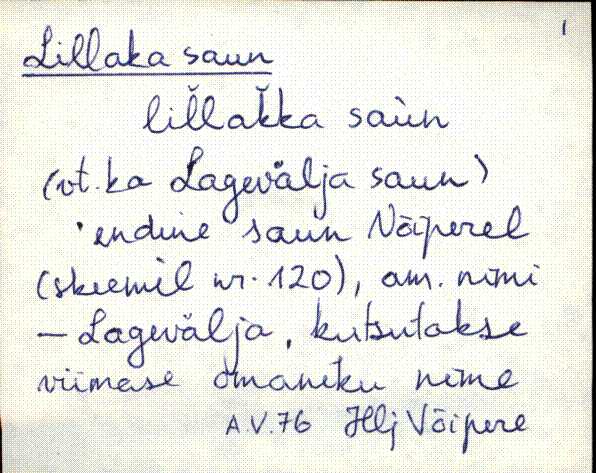 1
Lillaka saun
lil̆lak̆ka saùn
(vt. ka Lagevälja saun)
endine saun Võiperel
(skeemil nr. 120), am. nimi
— Lagevälja, kutsutakse
viimase omaniku nime
A.V. 76 Hlj Võipere